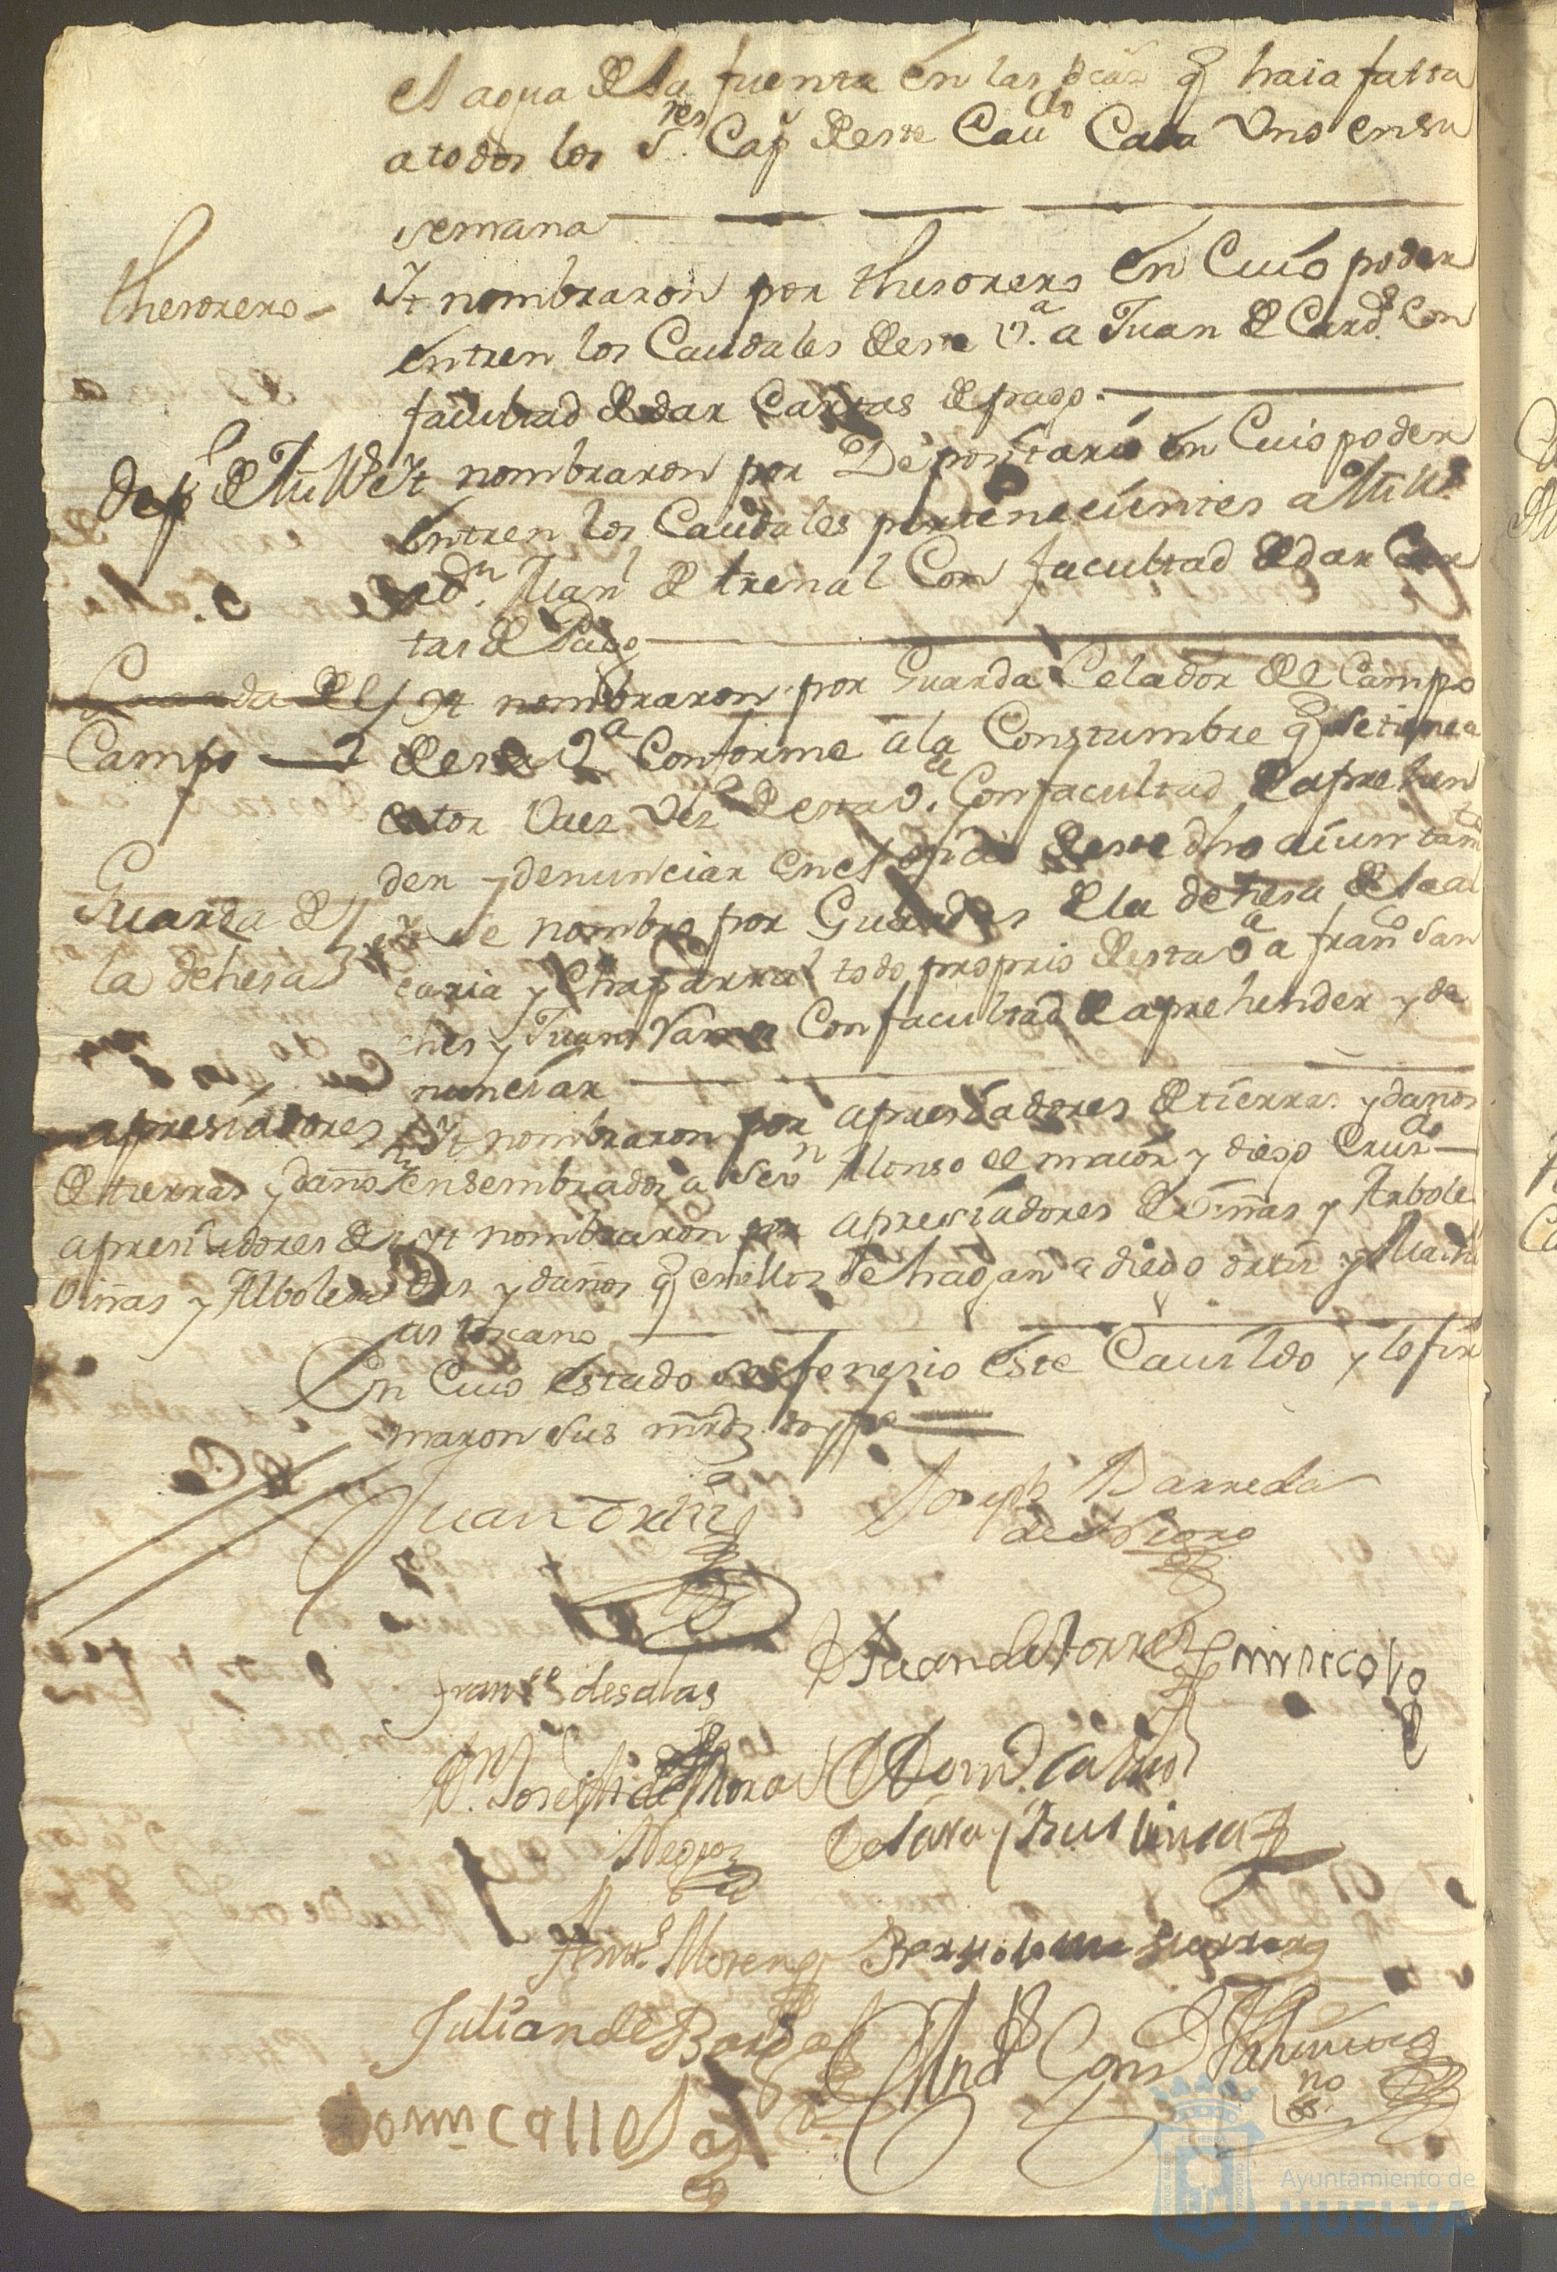 el agua de la fuente en las q haia falta
a todos los S.res Cap deste Cau.do Cada Uno en su
semana
thesorero
Yt nombraron por thesorero en Cuio poder
entren los Caudales desta V.a a Juan de Card.s Con
facultad de dar Cartas de pago.
Yt nombraron por Depositario en Cuio poder
entren los Caudales pertenecientes a
d.n Man.l de trenal Con facultad de dar Car
tas de Pago
Guarda del
Campo
Yt nombraron por Guarda Celador del Campo
desta V.a Conforme a la Constumbre q se tiene a
Vez.o desta V.a Con facultad de aprehen
der y denunciar en el ofiçio deste dho aiuntam.to
Guarda de
la dehesa
Yt se nombro por Guardas de la dehesa de la al
caria y Chaparral todo proprio desta V.a a fran.co San
ches y Juan Con facultad de aprehender y de
nunciar
apresiadores
de tierras y daños
Yt nombraron por apresiadores de tierras y daños
en sembrados a Alonso el maior y diego Cruz
apresiadores de
Viñas y Alboledas
Yt nombraron por apresiadores de Viñas y Arbole
das y daños q en ellos se hagan a diego ortiz y Mathi
as toscano
En Cuio estado se fenesio este Cauildo y lo fir
maron Sus mrds doy fe
Juan Ortiz
Joseph Barreda
de
fran.co de salas
Juan de torres
D.n Joseph de Mora
Negro
Dom.o
de Lara y
Ant.o Moreno
Bartholome Guerrero
Julian de Borda
And.s
Dom.o Calle
Ayuntamiento de
HUELVA